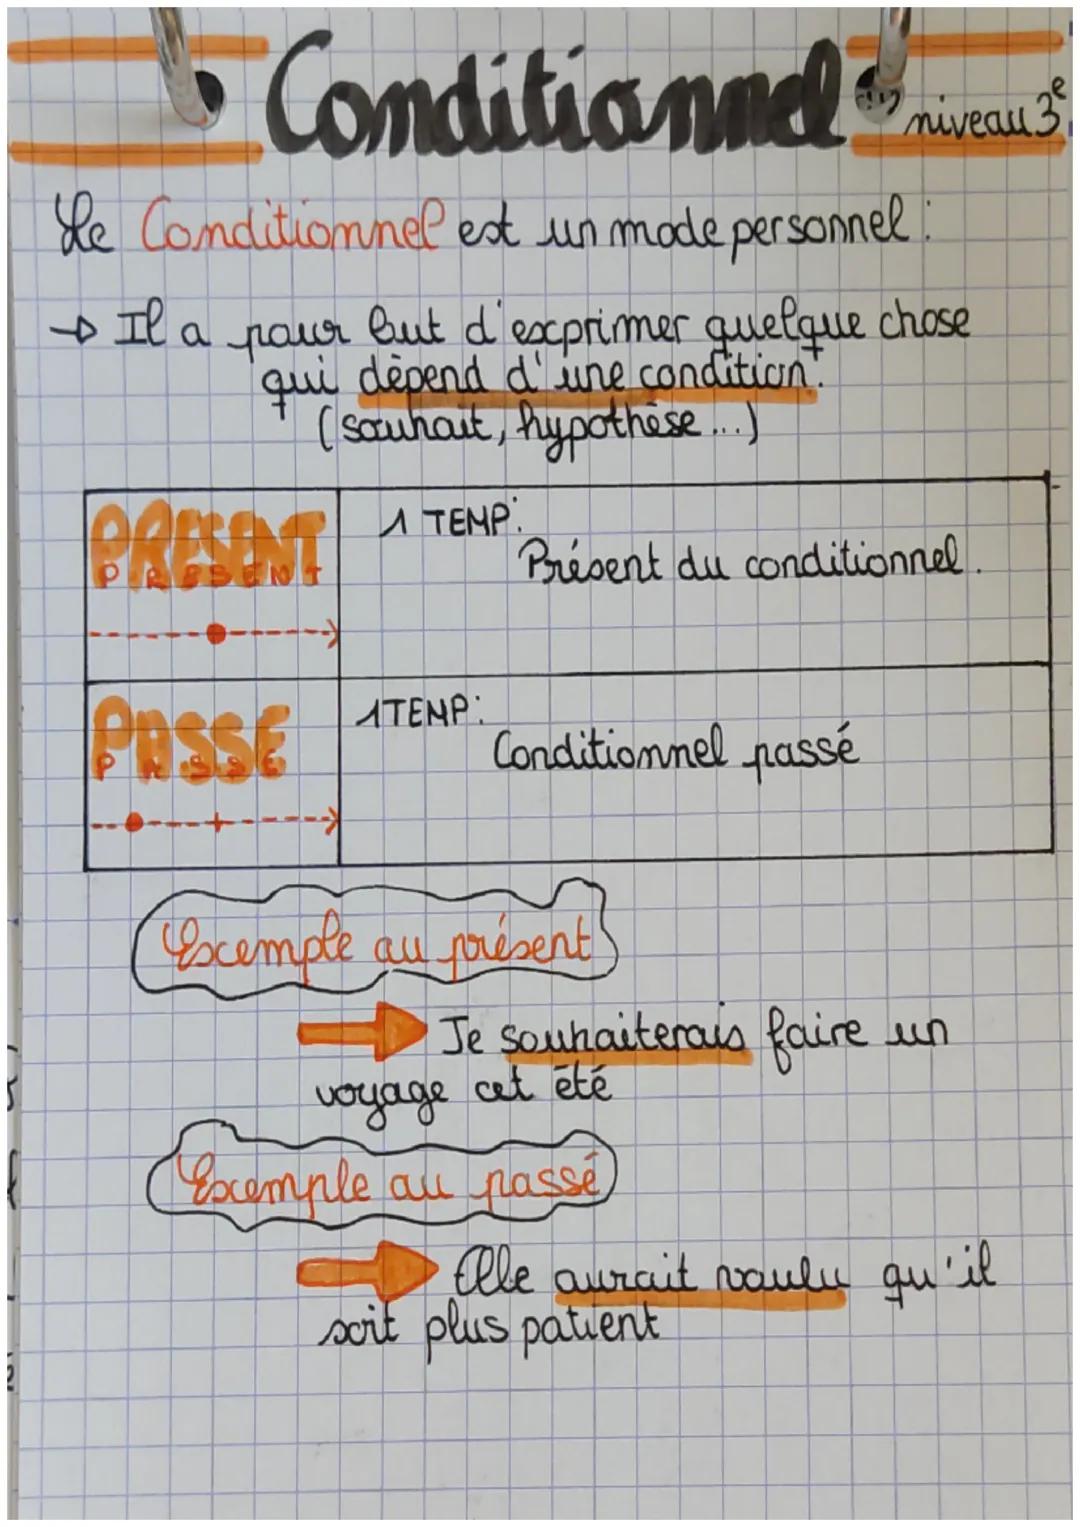 Conditionnel
niveau 3e
Le Conditionnel est un mode personnel :
→ Il a pour but d'exprimer quelque chose
qui dépend d'une condition.
(souhait, hypothèse...)
PRESENT
PRESENT
1 TEMP:
Présent du conditionnel.
PASSE
PASSE
1 TEMP:
Conditionnel passé
Exemple au présent
Je souhaiterais faire un
voyage cet été
Exemple au passé
Elle aurait voulu qu'il
soit plus patient